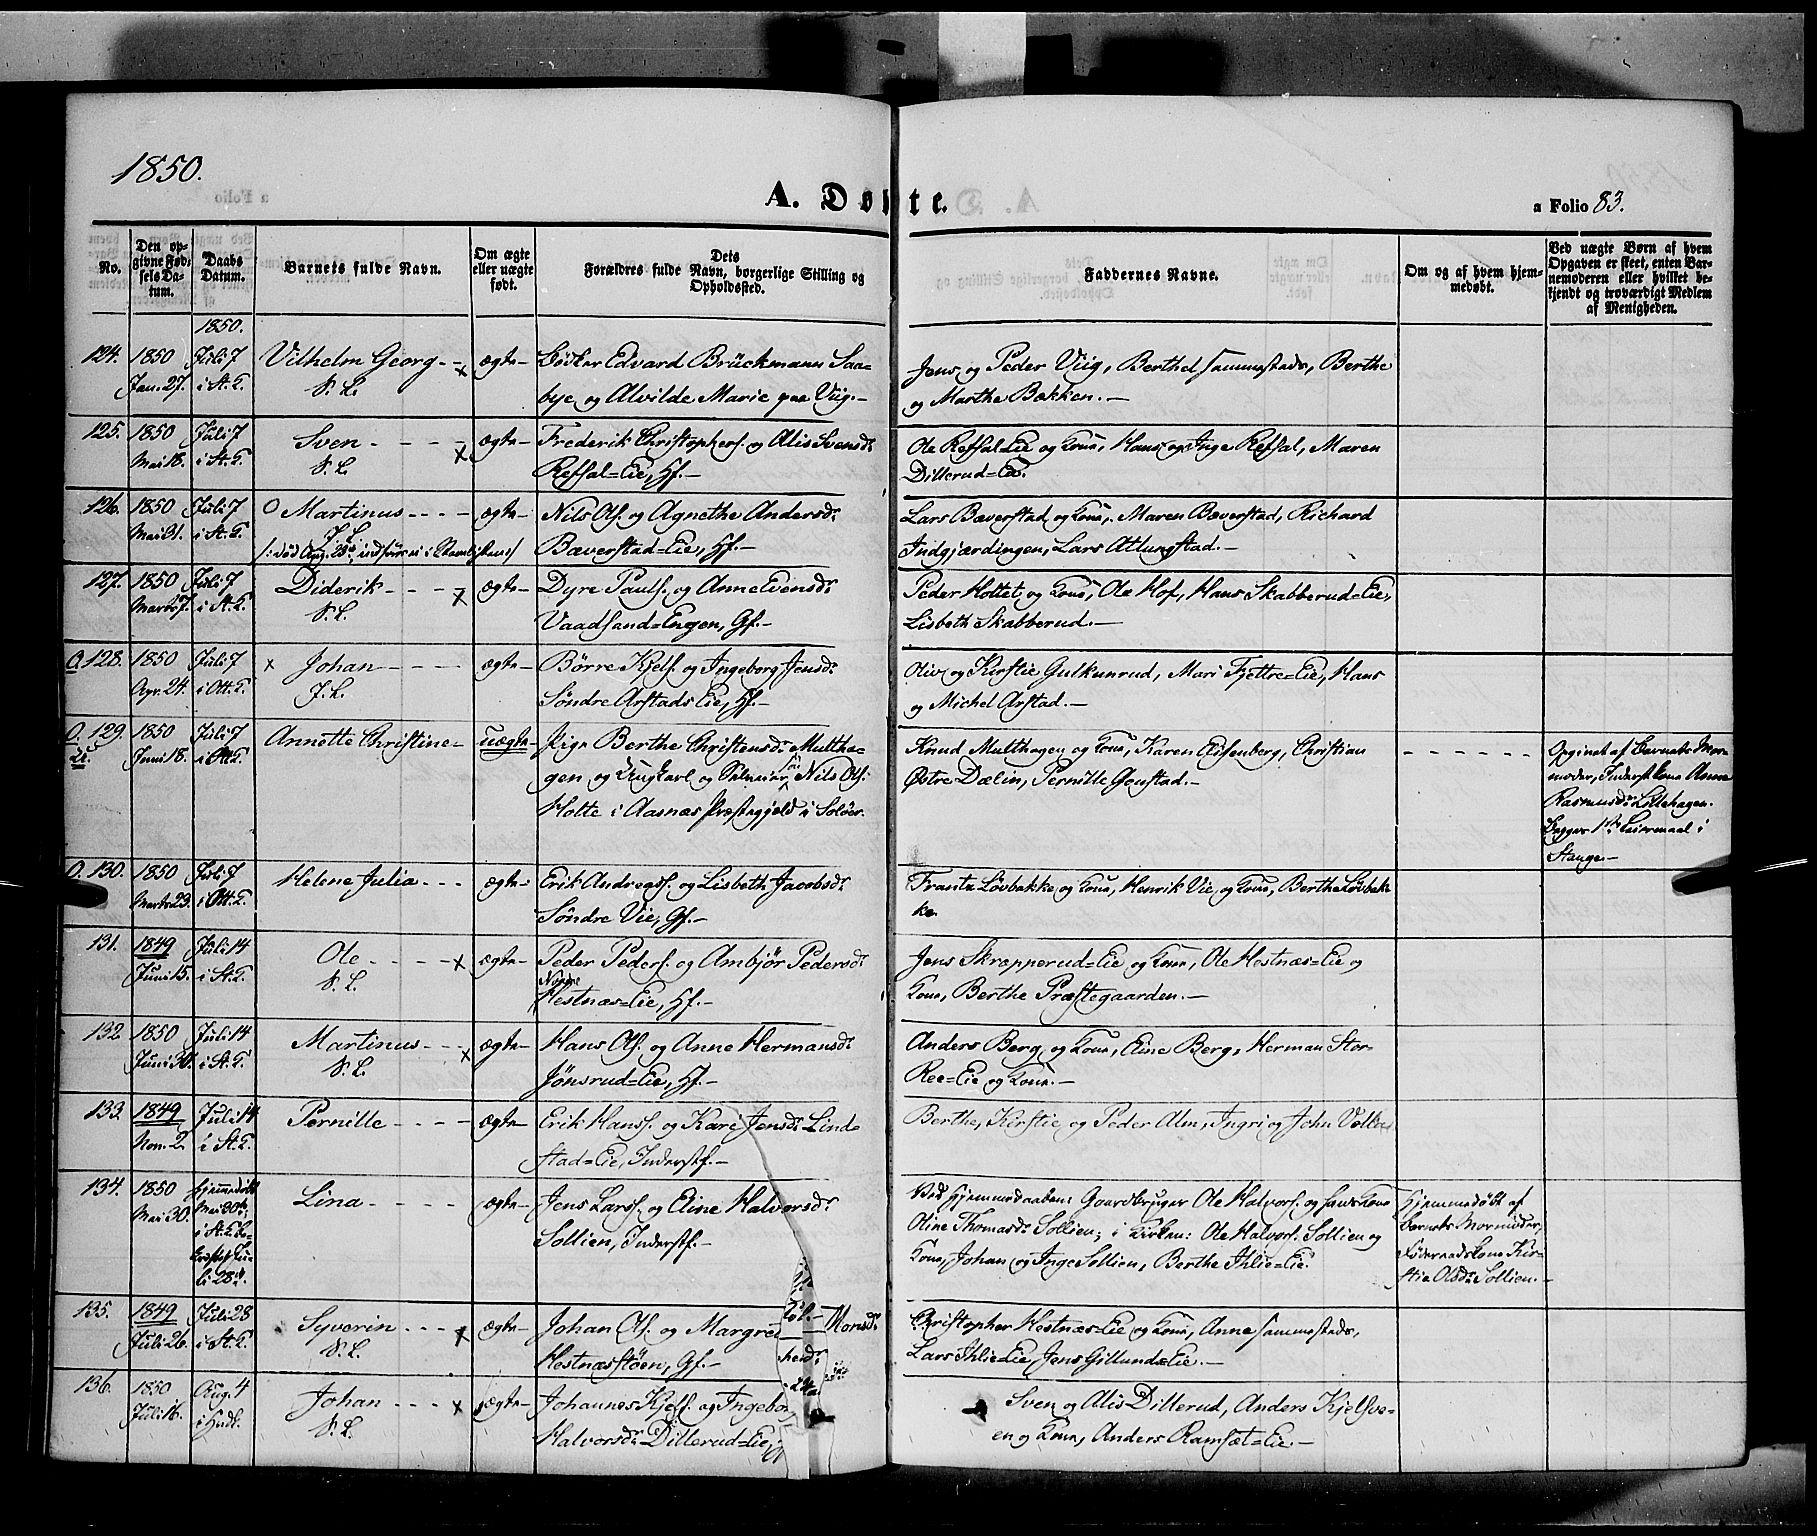 1850.
A. Døbte.
a Folio 83.
No.
Den opgivne Fødsels Datum.
Daabs Datum.
Barnets fulde Navn.
Om ægte eller uægte født.
Dets Forældres fulde Navn, borgerlige Stilling og Opholdssted.
Faddernes Navne.
Om og af hvem hjemmedøbt.
Ved uægte Børn af hvem Opgaven er skeet, enten Barnemoderen eller hvilket bekjendt og troværdigt Medlem af Menigheden.
1850.
124. 1850 Juli 7 Vilhelm Georg - - ægte- Edvard Brückmann Saa-
Jan. 27. i St. K. V. L. bye og Alvilde Marie paa Viig.-
Jens og Peder Viig, Berthe sammestads, Berthe
og Marthe Bækken.-
125. 1850 Juli 7 Sven - - - - ægte- Frederik Christophers. og Alis Svensd:
Mai 18. i St. K. V. L. Refsal=Eie, Hf.-
Ole Refsal=Eie og Kone, Hans og Inge Refsal, Maren
Dillerud=Eie.
126. 1850 Juli 7 Martinus - - - - ægte- Nils Ols. og Agnethe Andersd:
Mai 31. i St. K. Bæverstad=Eie, Hf.-
Lars Bæverstad og Kone, Maren Bæverstad, Richard
Indgjærdingen, Lars Atlungstad.-
127. 1850 Juli 7 Diderik - - - ægte- Dyre Pauls. og Anne Evensd:
Marts 7. i St. K. V. L. Vaadsand=Engen, Gf.-
Peder Holtet og Kone, Ole Hof, Hans Skabberud=Eie,
Lisbeth Skabberud.-
O. 128. 1850 Juli 7 x Johan - - - - ægte Børre Kjels. og Ingeborg Jensd:
Apr. 24. i Ott. K. Søndre Arstads Eie, Hf.-
Oliv og Kirstie Gulkunrud, Mari Fjettre=Eie, Hans
og Michel Arstad.-
O. 129. 1850 Juli 7 Annette Christine- uægte- Pige Berthe Christensd: Multha-
Juni 18. i Ott. K. gen, og Ungkarl og Nils Ols.
Holte i Aasnæs Præstegjeld i Solöer.
Knud Multhagen og Kone, Karen Eisenberg, Christian
Østre Dælin, Pernille Gonstad.-
Opgivet af Barnets Mor-
moder, Inderst Kone Anne
Rasmusd: Lillehagen.
Begges 1ste Leiermaal i
Stange.-
O. 130. 1850 Juli 7 Helene Julia - - - ægte- Erik Andreass. og Lisbeth Jacobsd:
Marts 23. i Ott. K. Söndre Vie, Gf.-
Frantz Lövbakke og Kone, Henrik Vie og Kone, Berthe Lövbak
ke.
131. 1849 Juli 14 Ole - - - - ægte- Peder Peders. og Ambjør Pedersd:
Juni 15. i St. K. V. L. Nordre Hestnæs=Eie, Hf.-
Jens Skræpperud=Eie og Kone, Ole Hestnæs=Eie og
Kone, Berthe Præstegaarden.-
132. 1850 Juli 14 Martinus - - - ægte- Hans Ols. og Anne Hermansd:
Juni 30. i St. K. V. L. Jönsrud=Eie, Hf.-
Anders Berg og Kone, Eine Berg, Herman Stor-
Ree=Eie og Kone.-
133. 1849 Juli 14 Pernille - - - - ægte- Erik Hanss. og Kari Jensd: Linde
Nov. 2. i St. K. stad=Eie, Inderstf.-
Berthe, Kirstie og Peder Alm, Ingri og John
134. 1850 hjemmedøbt Lina - - - - ægte- Jens Larss. og Eline Halvorsd:
Mai 30. Mai 30te, i St. K. Be-kræftet Juli 28d. Sollien, Inderstf.-
Ved Hjemmedaaben: Gaardbruger Ole Halvors. og hans Kone
Oline Thomasd: Sollien; i Kirken: Ole Halvors. Sollien og
Kone, Johan og Inge Sollien, Berthe Ihlie=Eie.
Hjemmedöbt af
Barnets Mormoder,
Föderaadskone Kir-
stie Olsd: Sollien.-
135. 1849 Juli 28 Syverin - - - - ægte- Johan Ols. og Margre Monsd:
Juli 26. i St. K. V. L. Hestnæsstöen, Gf.-
Christopher Hestnæs=Eie og Kone, Anne sammestads,
Lars Ihlie=Eie, Jens Gillund=Eie.-
136. 1850 Aug. 4 Johan - - - ægte- Johannes Kjels. og Ingebor
Juli 16. i Hovdk. V. L. Halvorsd: Dillerud=Eie,
Sven og Alis Dillerud, Anders Kjelsve-
en og Kone, Anders Ramsæt=Eie.-